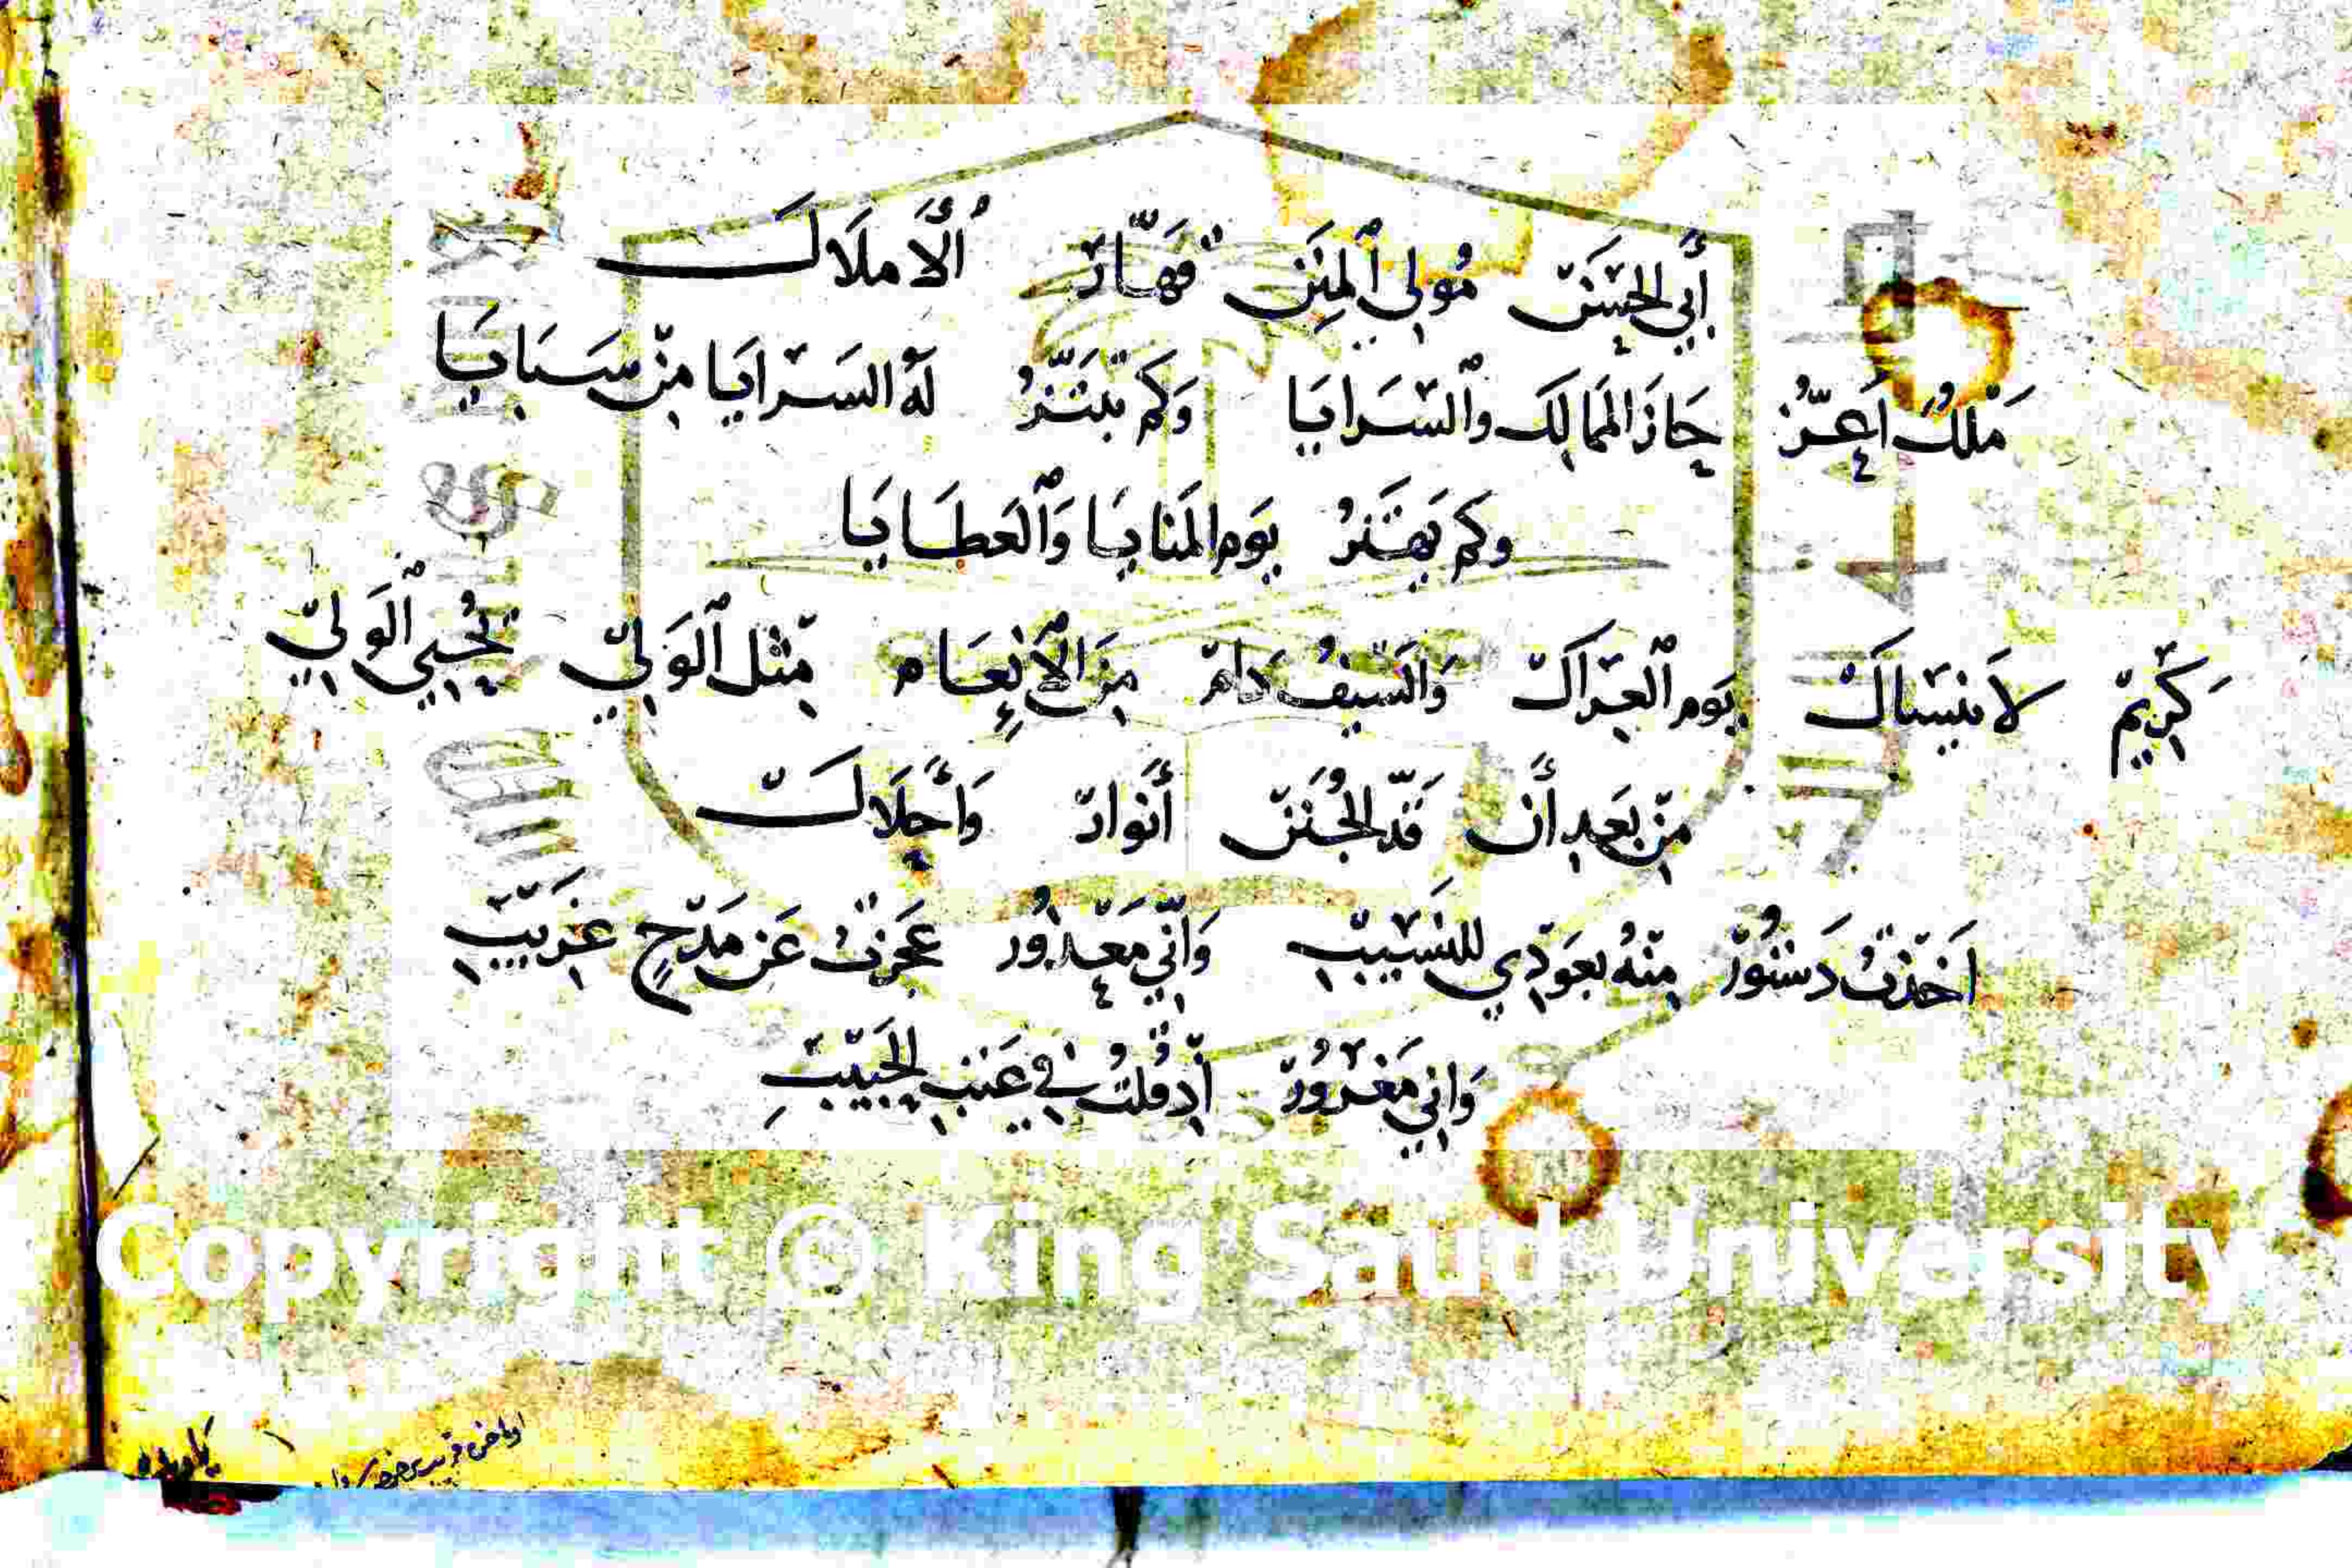 أَبِي الحَسَنْ مُولِي ٱلمِنَنْ قَهَّارْ ٱلأَمْلَاكْ
مَلِكْ اَعَزّْ حَازَ المَمَالِكَ وَٱلسَرَايَا وَكَمْ تَبْتَزُّ لَهُ السَرَايَا مِنْ سَبَايَا
وَكَمْ يَهْتَزُّ يَوْمَ المَنَايَا وَٱلعَطَايَا
كَرِيمْ لَا يَنْسَاكْ يَوْمَ ٱلعِرَاكْ وَالسَيفُ دَامْ مِنَ ٱلأِنْعَام مِثْل ٱلوَلِيّْ يُحْيِي ٱلوَلِيّْ
مِنْ بَعدِ أَنْ قَدّ الجُنَنْ أَنْوَارْ وَأَحْلَاكْ
اَخَذْتُ دَسْتُورْ مِنْهُ بِعَوْدِي لِلنَسِيبْ وَاَنِّي مَعْذُور عَجَزْتُ عَنْ مَدْحٍ غَرِيبْ
وَانِي مَغْرُورْ اِذْ قُلتُ فِي عَتْبِ الحَبِيبْ
Copyright © King Saud University